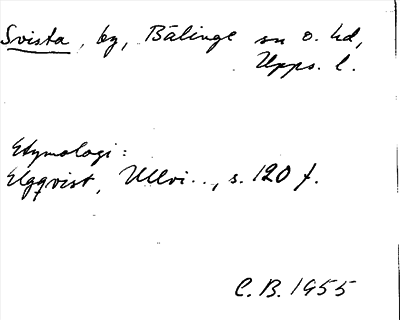 Svista, by, Bälinge sn o. hd,
Upps. l.
Etymologi:
Elgqvist, Ullvi..., s. 120 f.
C.B. 1955